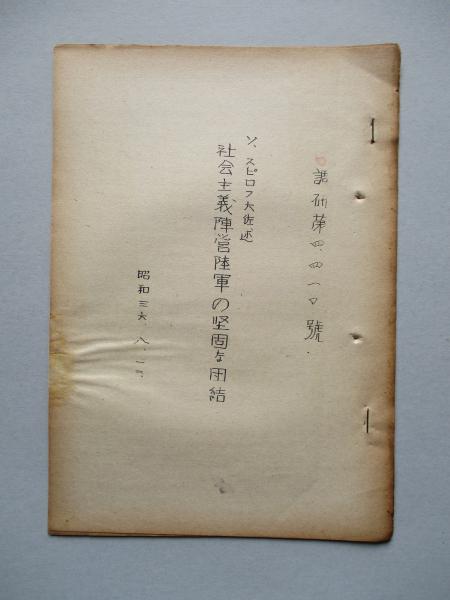 調研第四、四一〇號.
ソ、スピロフ大佐述
社会主義陣営陸軍の坚固な団結
昭和三六、八、一三、